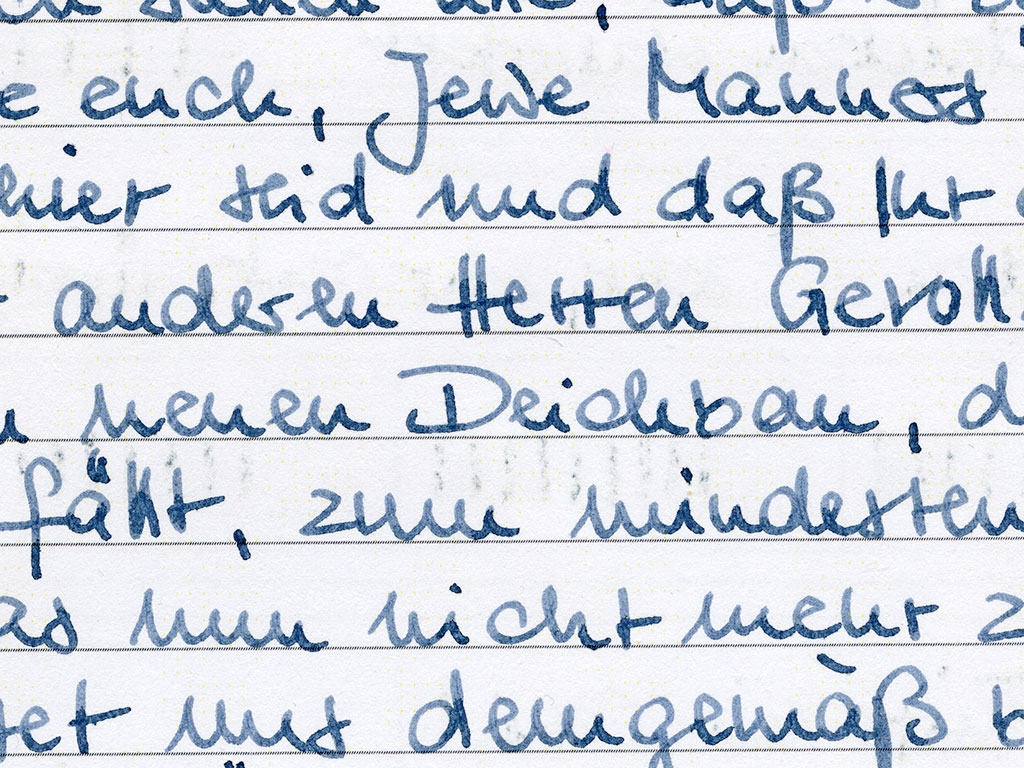 daß
e euch, Jewe Manners
hier seid und daß Ihr
anderen Herren Gevoll
neuen Deichbau, d
fällt, zum mindesten
as nun nicht mehr z
set uns demgemäß b